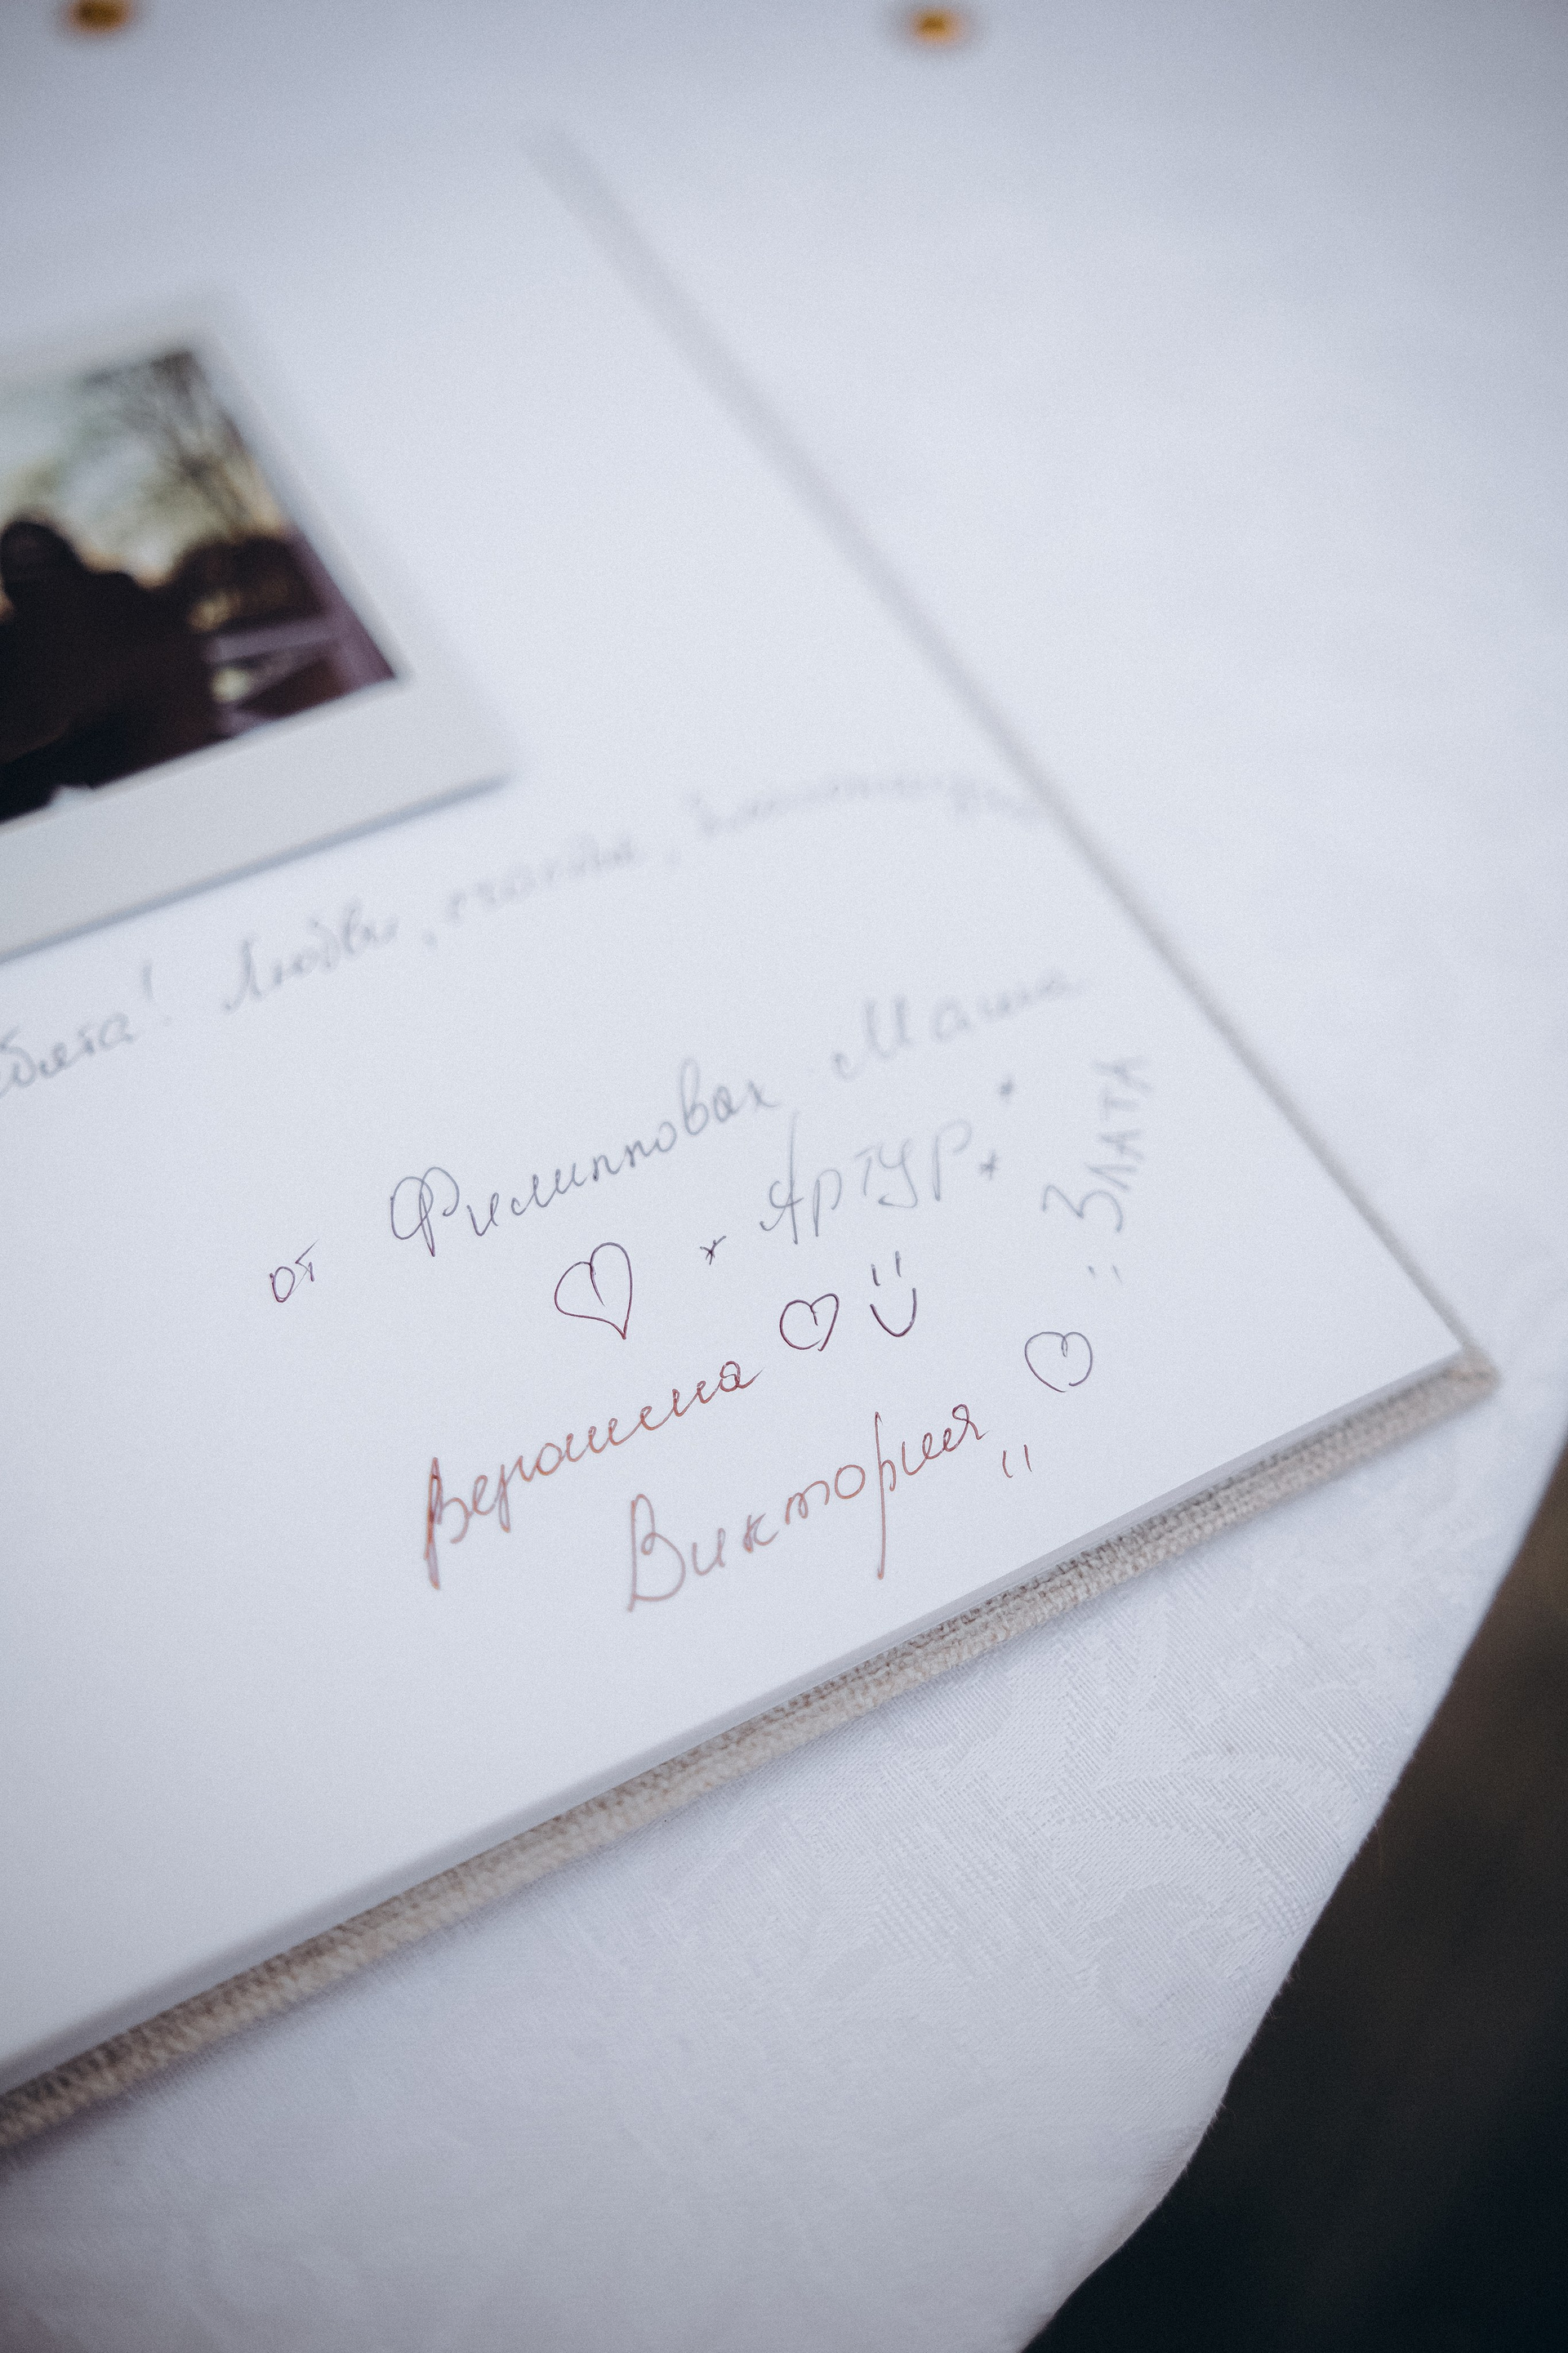 Любви, счастья,
от Филипповах Маша
АРТУР
ЗЛАТА
Вероника
Виктория